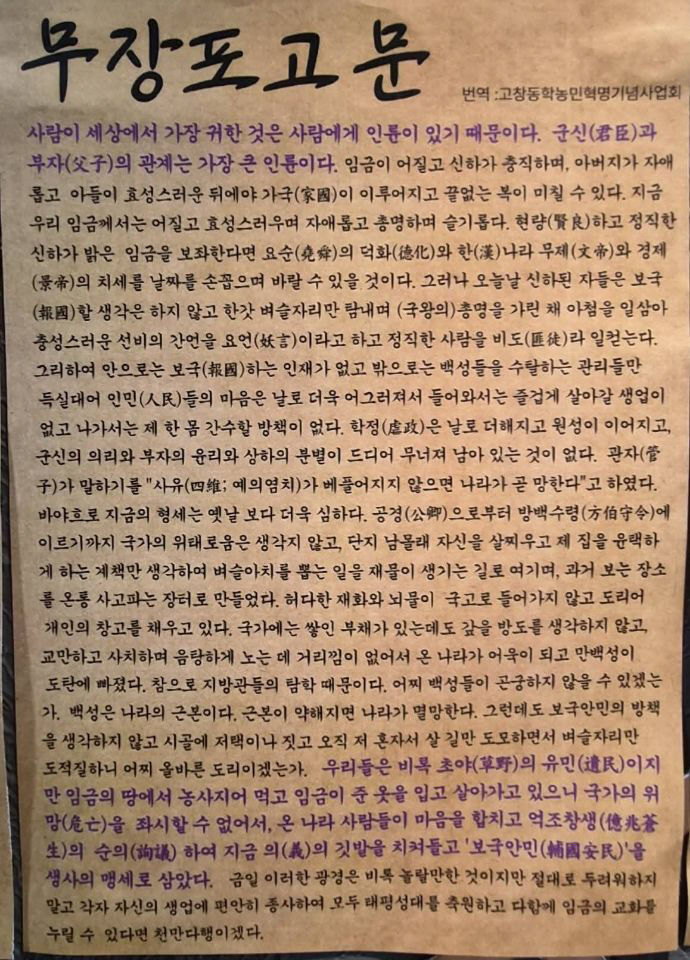 무장포고문
번역 :고창동학농민혁명기념사업회
사람이 세상에서 가장 귀한 것은 사람에게 인륜이 있기 때문이다. 군신(君臣)과
부자(父子)의 관계는 가장 큰 인륜이다. 임금이 어질고 신하가 충직하며, 아버지가 자애
롭고 아들이 효성스러운 뒤에야 가국(家國)이 이루어지고 끝없는 복이 미칠 수 있다. 지금
우리 임금께서는 어질고 효성스러우며 자애롭고 총명하며 슬기롭다. 현량(賢良)하고 정직한
신하가 밝은 임금을 보좌한다면 요순(堯舜)의 덕화(德化)와 한(漢)나라 무제(文帝)와 경제
(景帝)의 치세를 날짜를 손꼽으며 바랄 수 있을 것이다. 그러나 오늘날 신하된 자들은 보국
(報國)할 생각은 하지 않고 한갓 벼슬자리만 탐내며 (국왕의)총명을 가린 채 아첨을 일삼아
충성스러운 선비의 간언을 요언(妖言)이라고 하고 정직한 사람을 비도(匪徒)라 일컫는다.
그리하여 안으로는 보국(報國)하는 인재가 없고 밖으로는 백성들을 수탈하는 관리들만
득실대어 인민(人民)들의 마음은 날로 더욱 어그러져서 들어와서는 즐겁게 살아갈 생업이
없고 나가서는 제 한 몸 간수할 방책이 없다. 학정(虐政)은 날로 더해지고 원성이 이어지고,
군신의 의리와 부자의 윤리와 상하의 분별이 드디어 무너져 남아 있는 것이 없다. 관자(管
子)가 말하기를 "사유(四維; 예의염치)가 베풀어지지 않으면 나라가 곧 망한다"고 하였다.
바야흐로 지금의 형세는 옛날 보다 더욱 심하다. 공경(公卿)으로부터 방백수령(方伯守令)에
이르기까지 국가의 위태로움은 생각지 않고, 단지 남몰래 자신을 살찌우고 제 집을 윤택하
게 하는 계책만 생각하여 벼슬아치를 뽑는 일을 재물이 생기는 길로 여기며, 과거 보는 장소
를 온통 사고파는 장터로 만들었다. 허다한 재화와 뇌물이 국고로 들어가지 않고 도리어
개인의 창고를 채우고 있다. 국가에는 쌓인 부채가 있는데도 갚을 방도를 생각하지 않고,
교만하고 사치하며 음탕하게 노는 데 거리낌이 없어서 온 나라가 어육이 되고 만백성이
도탄에 빠졌다. 참으로 지방관들의 탐학 때문이다. 어찌 백성들이 곤궁하지 않을 수 있겠는
가. 백성은 나라의 근본이다. 근본이 약해지면 나라가 멸망한다. 그런데도 보국안민의 방책
을 생각하지 않고 시골에 저택이나 짓고 오직 저 혼자서 살 길만 도모하면서 벼슬자리만
도적질하니 어찌 올바른 도리이겠는가. 우리들은 비록 초야(草野)의 유민(遺民)이지
만 임금의 땅에서 농사지어 먹고 임금이 준 옷을 입고 살아가고 있으니 국가의 위
망(危亡)을 좌시할 수 없어서, 온 나라 사람들이 마음을 합치고 억조창생(億兆蒼
生)의 순의(詢議) 하여 지금 의(義)의 깃발을 치켜들고 '보국안민(輔國安民)'을
생사의 맹세로 삼았다. 금일 이러한 광경은 비록 놀랄만한 것이지만 절대로 두려워하지
말고 각자 자신의 생업에 편안히 종사하여 모두 태평성대를 축원하고 다함께 임금의 교화를
누릴 수 있다면 천만다행이겠다.